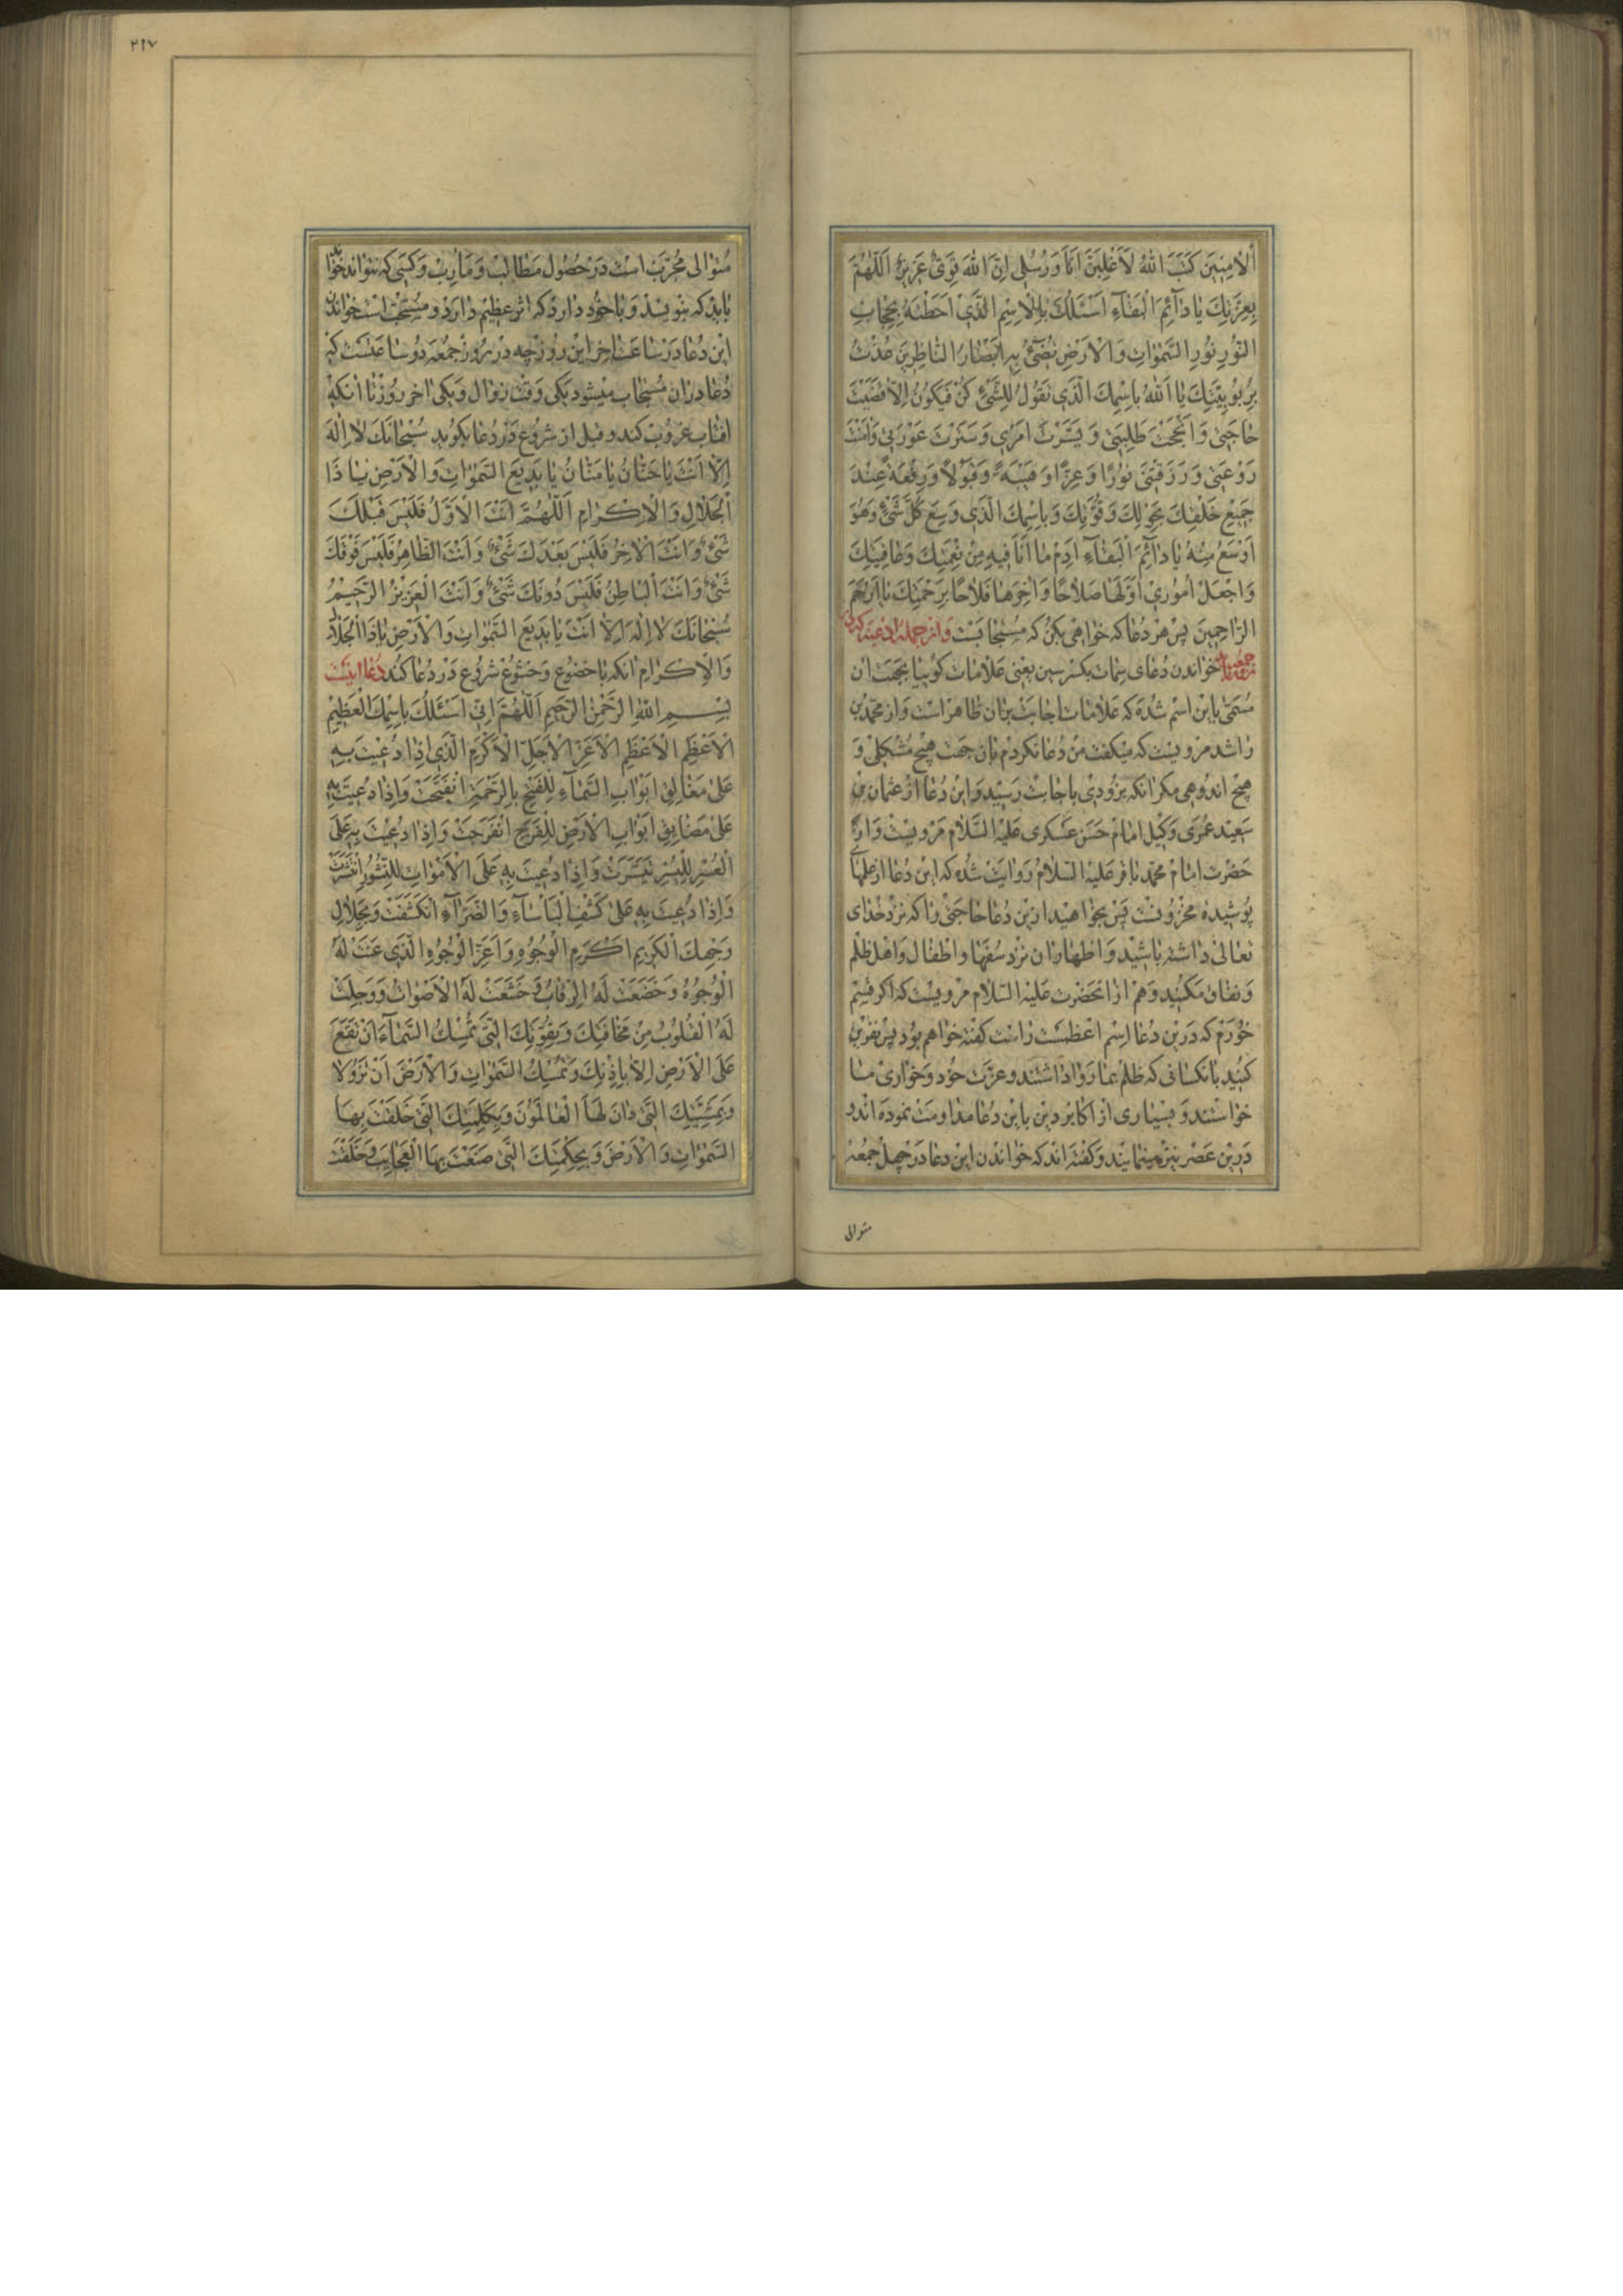 اَلْاٰمِنِينَ كَتَبَ اللهُ لَاَغْلِبَنَّ اَنَا وَرُسُلِي اِنَّ اللهَ قَوِيٌّ عَزِيزٌ اَللّهُمَّ
بِعِزَّتِكَ يا دآئِمَ الْبَقآءِ اَسْئَلُكَ بِالْاِسْمِ الَّذِي اَحَطْتَهُ بِحِجابِ
النُّورِ نُورِ السَّمٰواتِ وَالْاَرْضِ تُضِئُ بِهِ اَبْصارُ النّاظِرِينَ عُذْتُ
بِرُبُوبِيَّتِكَ يا اَللهُ بِاسْمِكَ الَّذِي تَقُولُ لِلشَّيْءِ كُنْ فَيَكُونُ اِلّا قَضَيْتَ
حاجَتِي وَاَنْجَحْتَ طَلِبَتِي وَيَسَّرْتَ اَمْرِي وَسَتَرْتَ عَوْرَتِي وَاٰمَنْتَ
رَوْعَتِي وَرَزَقْتَنِي نُورًا وَعِزًّا وَهَيْبَةً وَقَبُولًا وَرِفْعَةً عِنْدَ
جَمِيعِ خَلْقِكَ بِحَوْلِكَ وَقُوَّتِكَ وَبِاسْمِكَ الَّذِي وَسِعَ كُلَّ شَيْءٍ وَهُوَ
اَوْسَعُ مِنْهُ يا دآئِمَ الْبَقآءِ اَدِمْ ما اَنَا فِيهِ مِنْ نِعْمَتِكَ وَعافِيَتِكَ
وَاجْعَلْ اُمُورِي اَوَّلَها صَلاحًا وَاٰخِرَها فَلاحًا بِرَحْمَتِكَ يا اَرْحَمَ
الرّاحِمِينَ پس هر دعا كه خواهى بكن كه مستجابست واز جمله ادعيه كه در
روز جمعه خواندن دعاى سمات بكسر سين يعنى علامات گويا بجهت آن
مسمّى باين اسم شده كه علامات اجابت بر آن ظاهر است واز محمّد بن
راشد مرويست كه ميگفت من دعا نكردم بآن جهت هيچ مشكلى و
هيچ اندوهى مگر آنكه بزودى باجابت رسيد واين دعا از عثمان بن
سعيد عمرى وكيل امام حسن عسكرى عليه السّلام مرويست واز
حضرت امام محمّد باقر عليه السّلام روايت شده كه اين دعا از علمهاى
پوشيده مخزونست پس بخواهيد ازين دعا حاجتى را كه نزد خداى
تعالى داشته باشيد واظهار آن نزد سفها واطفال واهل ظلم
ونفاق مكنيد وهم از آنحضرت عليه السّلام مرويست كه اگر قسم
خورم كه درين دعا اسم اعظمست راست گفته خواهم بود پس نفرين
كنيد بآنكسانى كه ظلم بما روا داشتند وعزّت خود وخوارى ما
خواستند وبسيارى از اكابر دين باين دعا مداومت نموده اند و
درين عصر نيز مينمايند وگفته اند كه خواندن اين دعا در چهل جمعه
متوالى
٢١٧
متوالى مجرّب است در حصول مطالب ومآرب وكسى كه نتواند خواند
بايد كه بنويسد وبا خود دارد كه اثر عظيم دارد ومستحبّ است خواندن
اين دعا در ساعت آخر اين روز چه در روز جمعه دو ساعتست كه
دعا در آن مستجاب ميشود يكى وقت زوال ويكى آخر روز تا آنكه
آفتاب غروب كند وقبل از شروع در دعا بگويد سُبْحانَكَ لا اِلٰهَ
اِلّا اَنْتَ يا حَنّانُ يا مَنّانُ يا بَدِيعَ السَّمٰواتِ وَالْاَرْضِ يا ذَا
الْجَلالِ وَالْاِكْرامِ اَللّهُمَّ اَنْتَ الْاَوَّلُ فَلَيْسَ قَبْلَكَ
شَيْءٌ وَاَنْتَ الْاٰخِرُ فَلَيْسَ بَعْدَكَ شَيْءٌ وَاَنْتَ الظّاهِرُ فَلَيْسَ فَوْقَكَ
شَيْءٌ وَاَنْتَ الْباطِنُ فَلَيْسَ دُونَكَ شَيْءٌ وَاَنْتَ الْعَزِيزُ الرَّحِيمُ
سُبْحانَكَ لا اِلٰهَ اِلّا اَنْتَ يا بَدِيعَ السَّمٰواتِ وَالْاَرْضِ يا ذَا الْجَلالِ
وَالْاِكْرامِ آنكه با خضوع وخشوع شروع در دعا كند دعا اينست
بِسْمِ اللهِ الرَّحْمٰنِ الرَّحِيمِ اَللّهُمَّ اِنِّي اَسْئَلُكَ بِاسْمِكَ الْعَظِيمِ
الْاَعْظَمِ الْاَعْظَمِ الْاَعَزِّ الْاَجَلِّ الْاَكْرَمِ الَّذِي اِذا دُعِيتَ بِهِ
عَلٰى مَغالِقِ اَبْوابِ السَّمآءِ لِلْفَتْحِ بِالرَّحْمَةِ انْفَتَحَتْ وَاِذا دُعِيتَ بِهِ
عَلٰى مَضايِقِ اَبْوابِ الْاَرْضِ لِلْفَرَجِ انْفَرَجَتْ وَاِذا دُعِيتَ بِهِ عَلَى
الْعُسْرِ لِلْيُسْرِ تَيَسَّرَتْ وَاِذا دُعِيتَ بِهِ عَلَى الْاَمْواتِ لِلنُّشُورِ انْتَشَرَتْ
وَاِذا دُعِيتَ بِهِ عَلٰى كَشْفِ الْبَاْسآءِ وَالضَّرّآءِ انْكَشَفَتْ وَبِجَلالِ
وَجْهِكَ الْكَرِيمِ اَكْرَمِ الْوُجُوهِ وَاَعَزِّ الْوُجُوهِ الَّذِي عَنَتْ لَهُ
الْوُجُوهُ وَخَضَعَتْ لَهُ الرِّقابُ وَخَشَعَتْ لَهُ الْاَصْواتُ وَوَجِلَتْ
لَهُ الْقُلُوبُ مِنْ مَخافَتِكَ وَبِقُوَّتِكَ الَّتِي تُمْسِكُ السَّمآءَ اَنْ تَقَعَ
عَلَى الْاَرْضِ اِلّا بِاِذْنِكَ وَتُمْسِكُ السَّمٰواتِ وَالْاَرْضَ اَنْ تَزُولا
وَبِمَشِيَّتِكَ الَّتِي دانَ لَهَا الْعالَمُونَ وَبِكَلِمَتِكَ الَّتِي خَلَقْتَ بِهَا
السَّمٰواتِ وَالْاَرْضَ وَبِحِكْمَتِكَ الَّتِي صَنَعْتَ بِهَا الْعَجايِبَ وَخَلَقْتَ